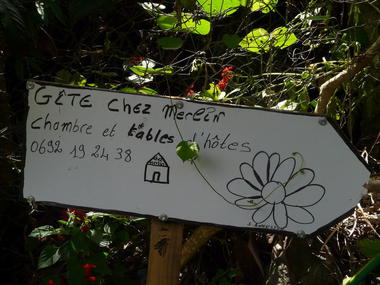 GÎTE chez Merlin
Chambre et tables d'hôtes
0692 19 24 38